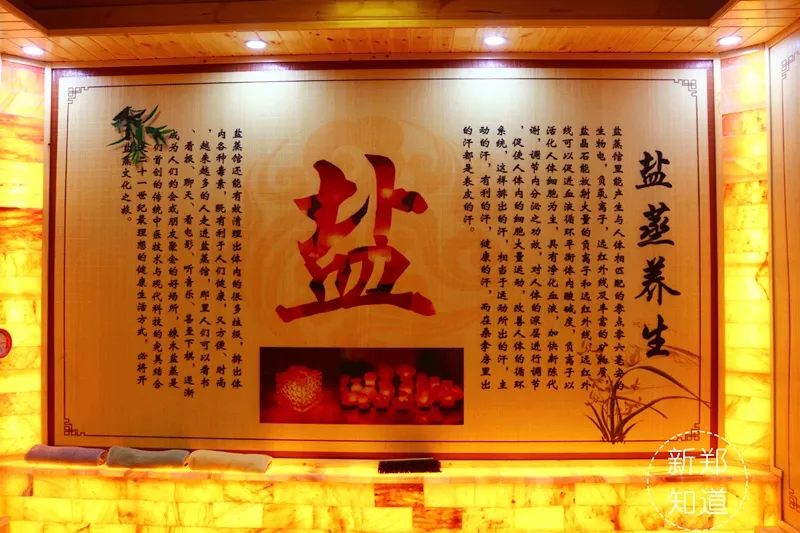 盐蒸养生
盐蒸馆里能产生与人体相匹配的零点零六毫安的
生物电，负氧离子，远红外线及丰富的矿物质，
盐晶石能放射大量的负离子和远红外线，远红外
线可以促进血液循环平衡体内酸碱度，负离子以
活化人体细胞为主，具有净化血液，加快新陈代
谢，调节内分泌之功效，对人体的深层进行调节
，促使人体内的细胞大量运动，改善人体的循环
系统，这样排出的汗，相当于运动所出的汗，主
动的汗，有利的汗，健康的汗，而在桑拿房里出
的汗都是表皮的汗。
盐
盐蒸馆还能有效清理出体内的很多垃圾，排出体
内各种毒素，既有利于人们健康，又方便、时尚
，越来越多的人走进盐蒸馆，那里人们可以看书
、看报、聊天、看电影、听音乐、甚至下棋，逐渐
成为人们约会或朋友聚会的好场所，栋木盐蒸是
们首创的传统中医技术与现代科技的完美结合
二十一世纪最理想的健康生活方式，必将开
盐蒸文化之旅。
新郑
知道